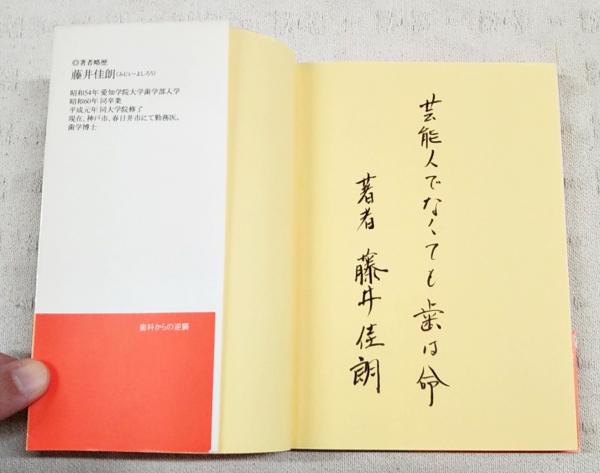 ◎著者略歴
藤井佳朗(ふじい・よしろう)
昭和54年 愛知学院大学歯学部入学
昭和60年 同卒業
平成元年 同大学院修了
現在、神戸市、春日井市にて勤務医。
歯学博士
歯科からの逆襲
芸能人でなくても歯は命
著者 藤井佳朗